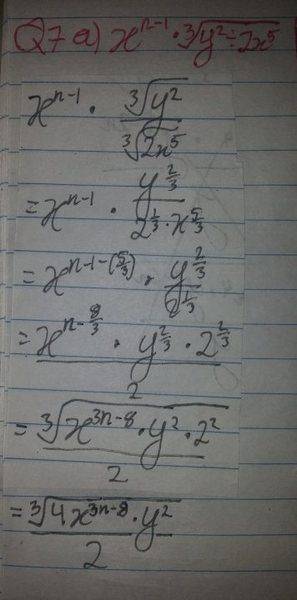 Q7 a) x^{n-1} · ∛(y² ÷ 2x⁵)
x^{n-1} · ∛(y²) / ∛(2x⁵)
= x^{n-1} · y^{2/3} / (2^{1/3} · x^{5/3})
= x^{n-1-(5/3)} · y^{2/3} / 2^{1/3}
= (x^{n-8/3} · y^{2/3} · 2^{2/3}) / 2
= ∛(x^{3n-8} · y² · 2²) / 2
= ∛(4x^{3n-8} · y²) / 2